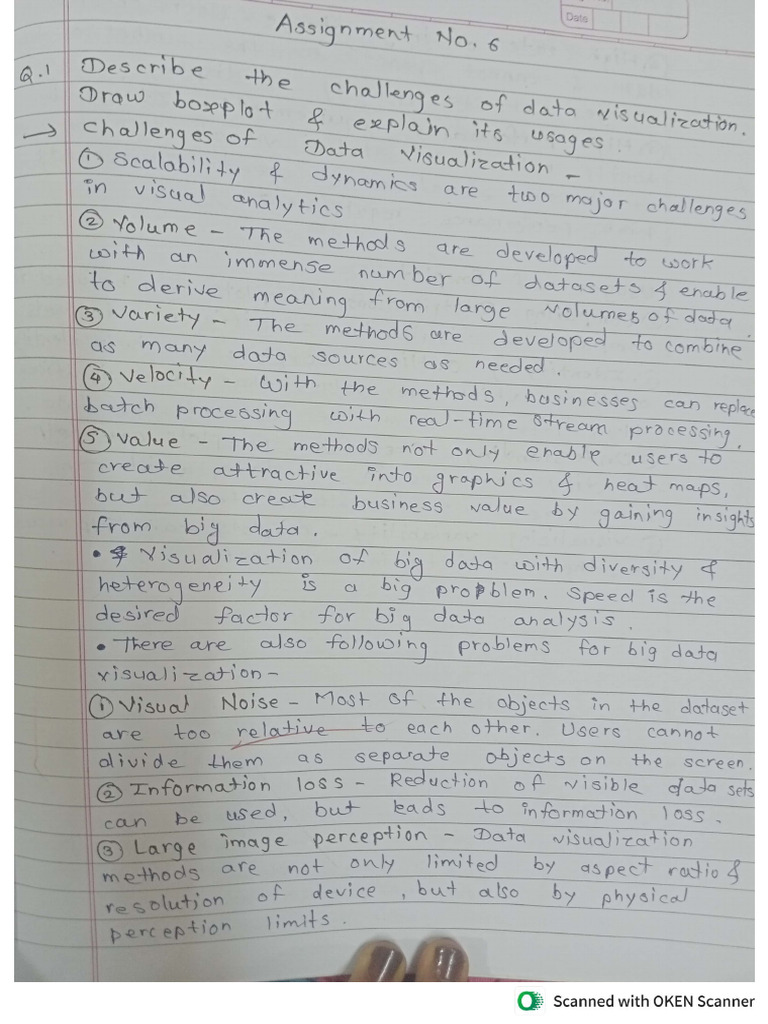 Date
Assignment No. 6
Q.1 Describe the challenges of data visualization.
Draw boxplot & explain its usages.
→ Challenges of Data Visualization -
① Scalability & dynamics are two major challenges
in visual analytics
② Volume - The methods are developed to work
with an immense number of datasets & enable
to derive meaning from large volumes of data.
③ Variety - The methods are developed to combine
as many data sources as needed.
④ Velocity - With the methods, businesses can replace
batch processing with real-time stream processing.
⑤ Value - The methods not only enable users to
create attractive into graphics & heat maps,
but also create business value by gaining insights
from big data.
• Visualization of big data with diversity &
heterogeneity is a big problem. Speed is the
desired factor for big data analysis.
• There are also following problems for big data
visualization -
① Visual Noise - Most of the objects in the dataset
are too relative to each other. Users cannot
divide them as separate objects on the screen.
② Information loss - Reduction of visible data sets
can be used, but leads to information loss.
③ Large image perception - Data visualization
methods are not only limited by aspect ratio &
resolution of device, but also by physical
perception limits.
Scanned with OKEN Scanner